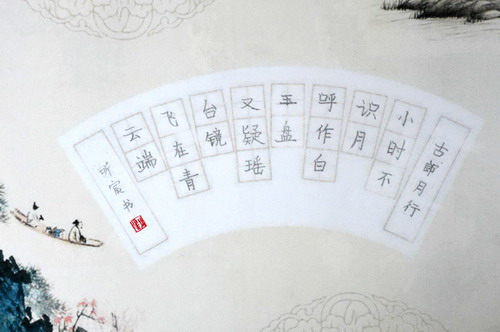 古郎月行
小时不
识月
呼作白
玉盘
又疑瑶
台镜
飞在青
云端
昕宸书